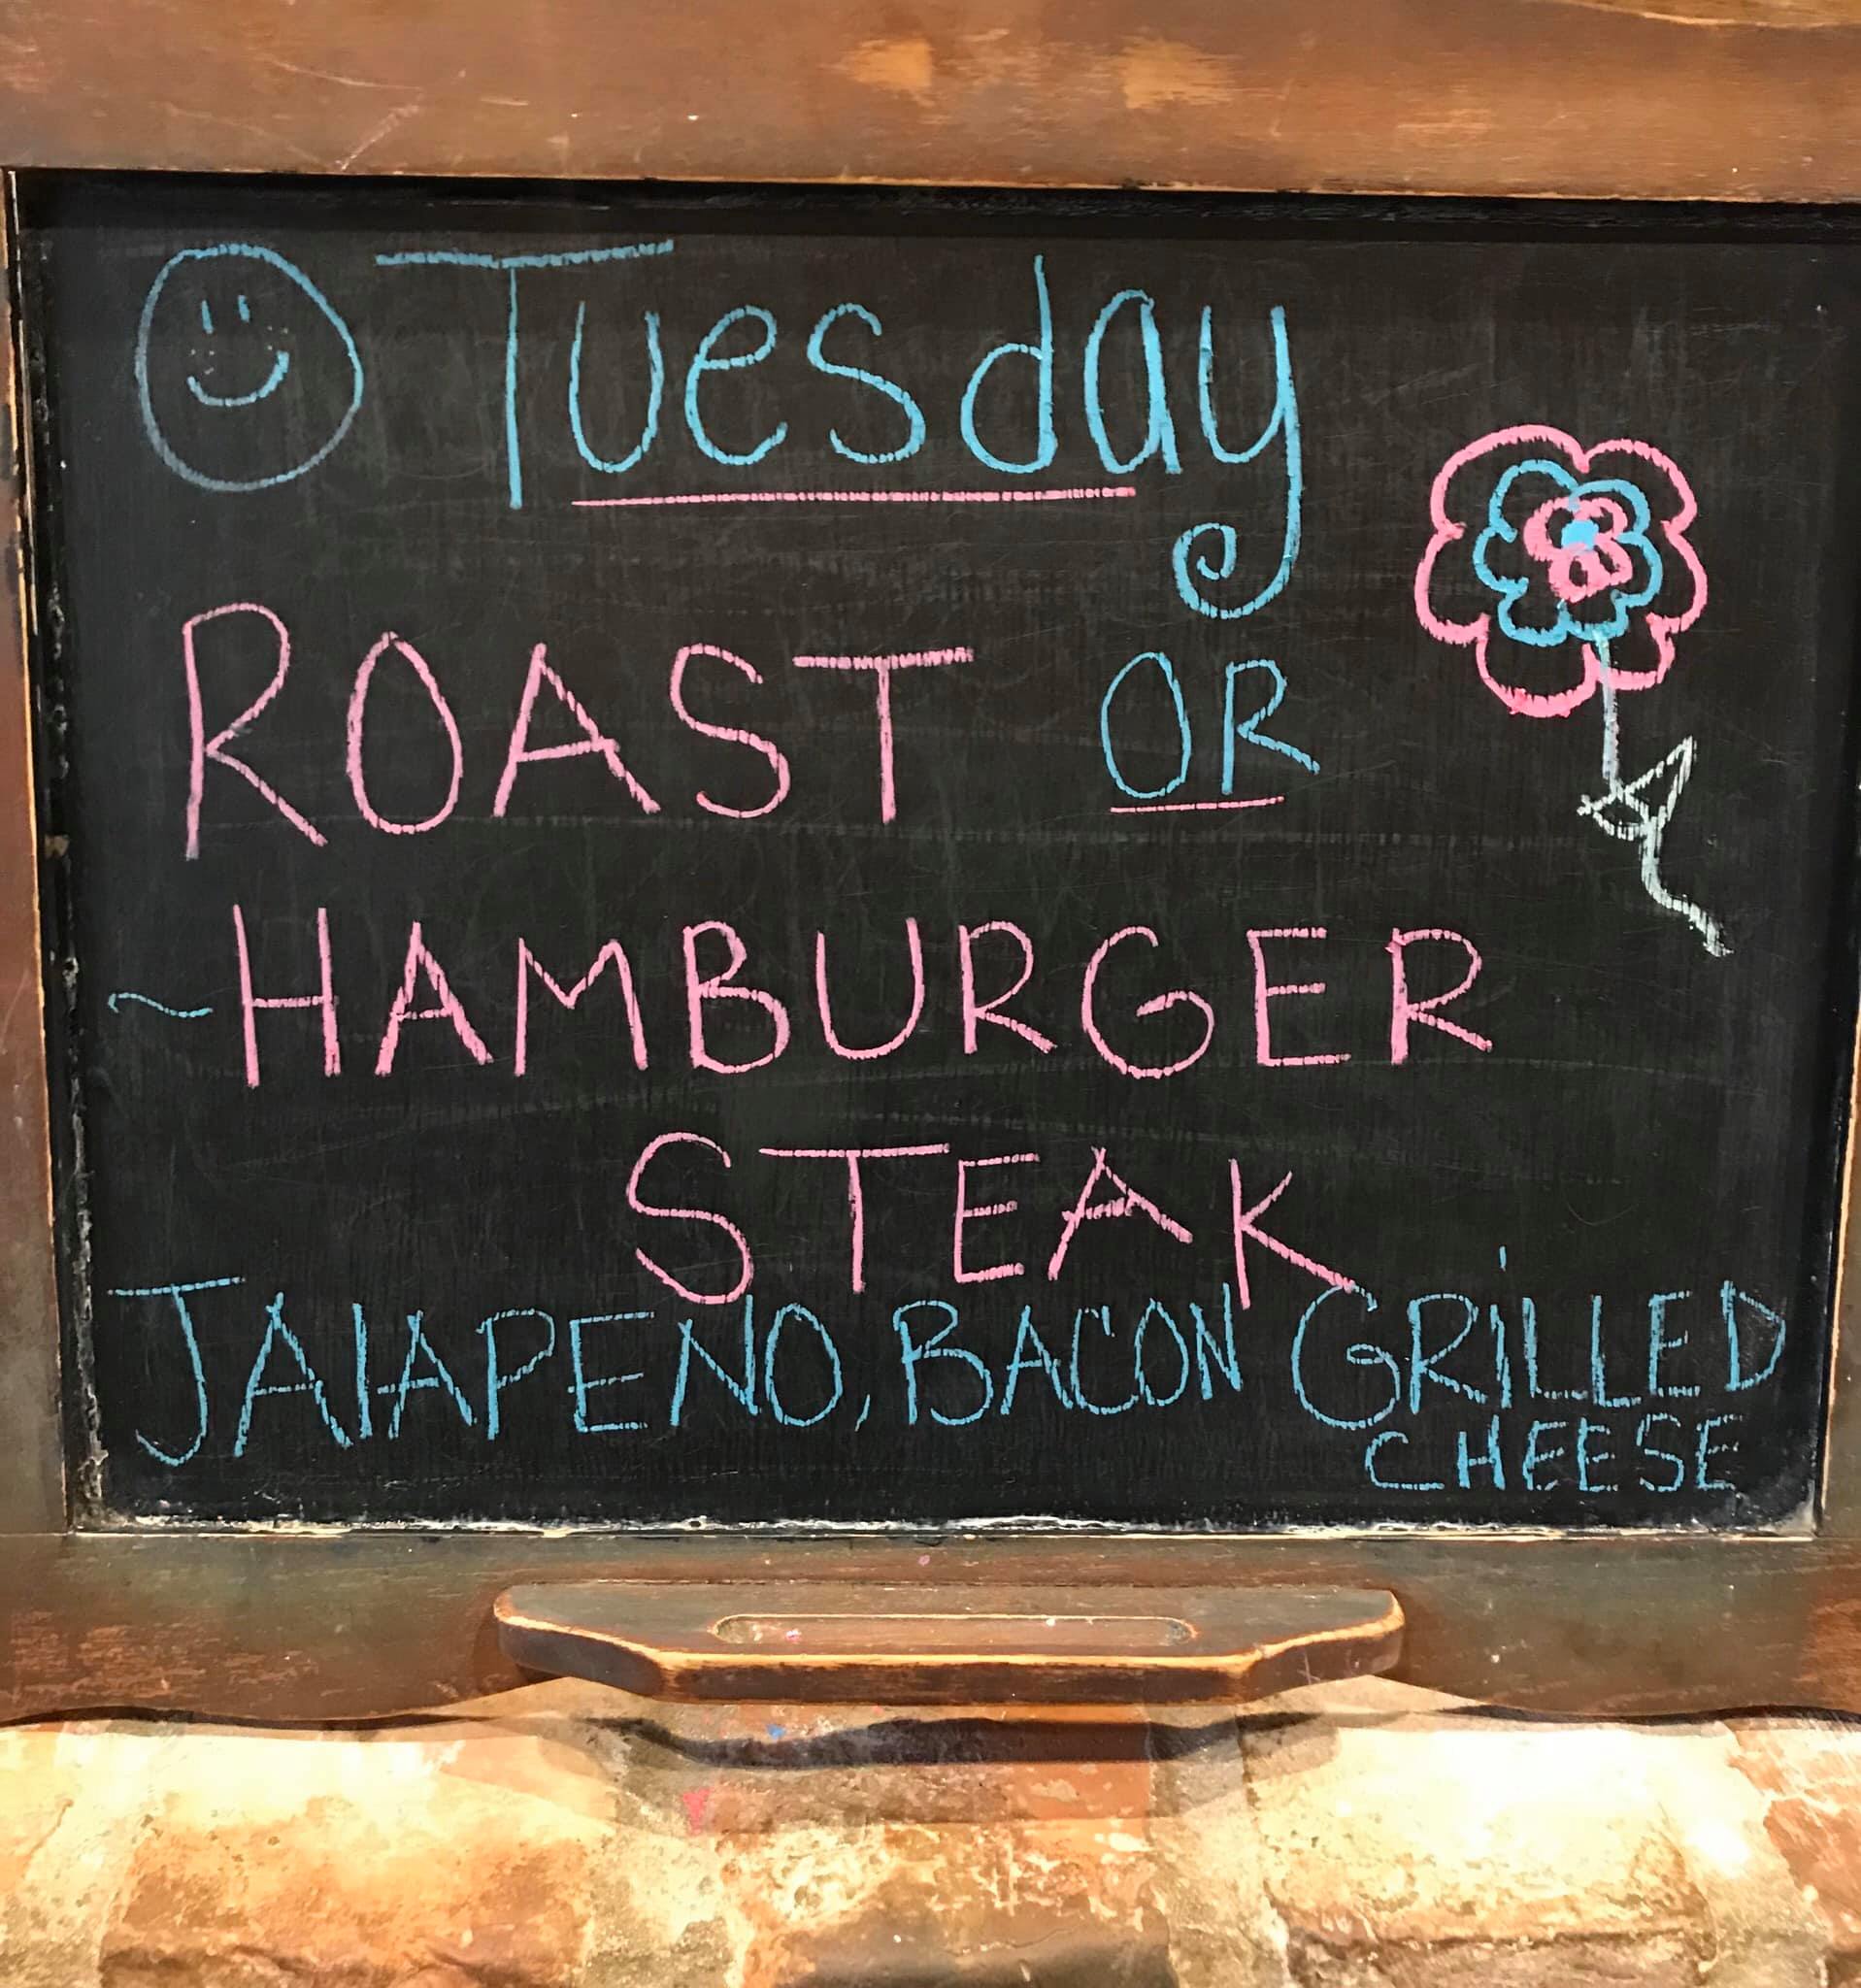 Tuesday
ROAST OR
~HAMBURGER
STEAK
JAlAPENO, BACON GRiLLED
CHEESE